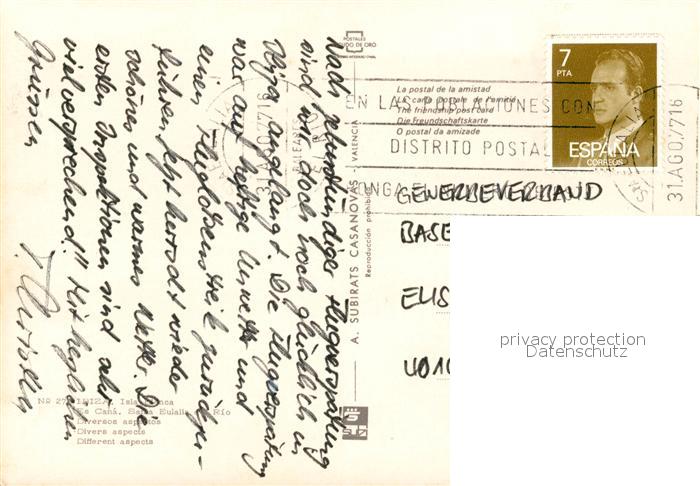 Nach zehnstündiger Flugverspätung
sind wir doch noch glücklich in
Ibiza angelangt. Die Flugverspätung
war auf heftige Unwetter und
einen Fluglotsenstreik zurückzu-
führen. Jetzt herrscht wieder
schönes und warmes Wetter. Die
ersten Impressionen sind sehr
vielversprechend!! Mit herzlichen
Grüssen
POSTALES
ESCUDO DE ORO
A. SUBIRATS CASANOVAS - VALENCIA
Reproducción prohibida
La postal de la amistad
La carte postale de l'amitié
The friendship post card
Die Freundschaftskarte
O postal da amizade
7
PTA
ESPAÑA
CORREOS
EN LAS POBLACIONES CON
DISTRITO POSTAL
31.AGO.77.16
GEWERBEVERBAND
BASE
ELIS
4010
privacy protection
Datenschutz
Nº 27 IBIZA. Isla Blanca
Es Caná. Santa Eulalia del Río
Diversos aspectos
Divers aspects
Different aspects